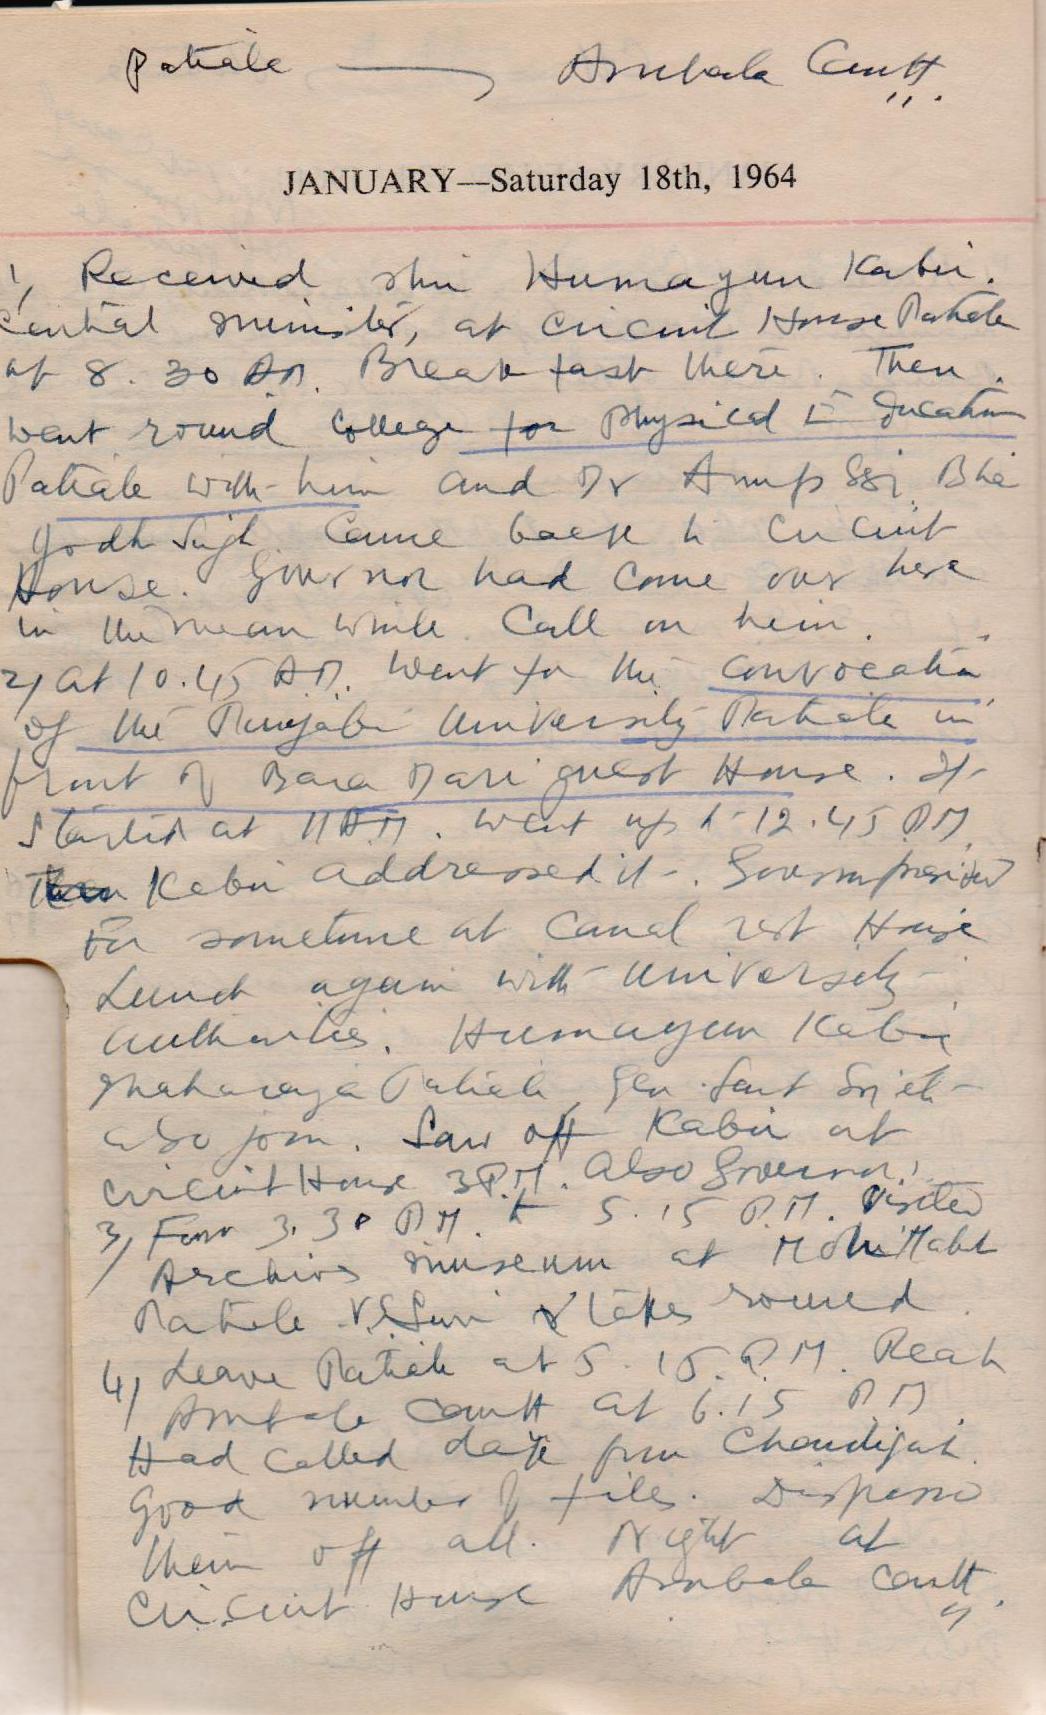 Patiala — Ambala Cantt
JANUARY—Saturday 18th, 1964
1, Received Shri Humayun Kabir.
Central Minister, at Circuit House Patiala
at 8.30 AM. Breakfast there. Then
went round College for Physical Education
Patiala with him and Dr Anup Sgi, Bhai
Jodh Singh. Came back to Circuit
House. Governor had come over here
in the mean while. Call on him.
2, at 10.45 AM. went for the convocation
of the Punjabi University Patiala in
front of Bara Dari guest House. It
started at 11 AM. went up to 12.45 PM
Then Kabir addressed it.
For sometime at Canal rest House
Lunch again with University
authorities. Humayun Kabir
Maharaja Patiala, Gen. Sant
also join. Saw off Kabir at
circuit House 3 P.M. Also Governor.
3, From 3.30 P.M. to 5.15 P.M. Visited
Archives museum at Moti Mahal
Patiala. V.S. Suri takes round.
4, Leave Patiala at 5.15 P.M. Reach
Ambala Cantt at 6.15 PM
Had called from Chandigarh.
Good number of files. Dispose
them off all. Night at
Circuit House Ambala Cantt.